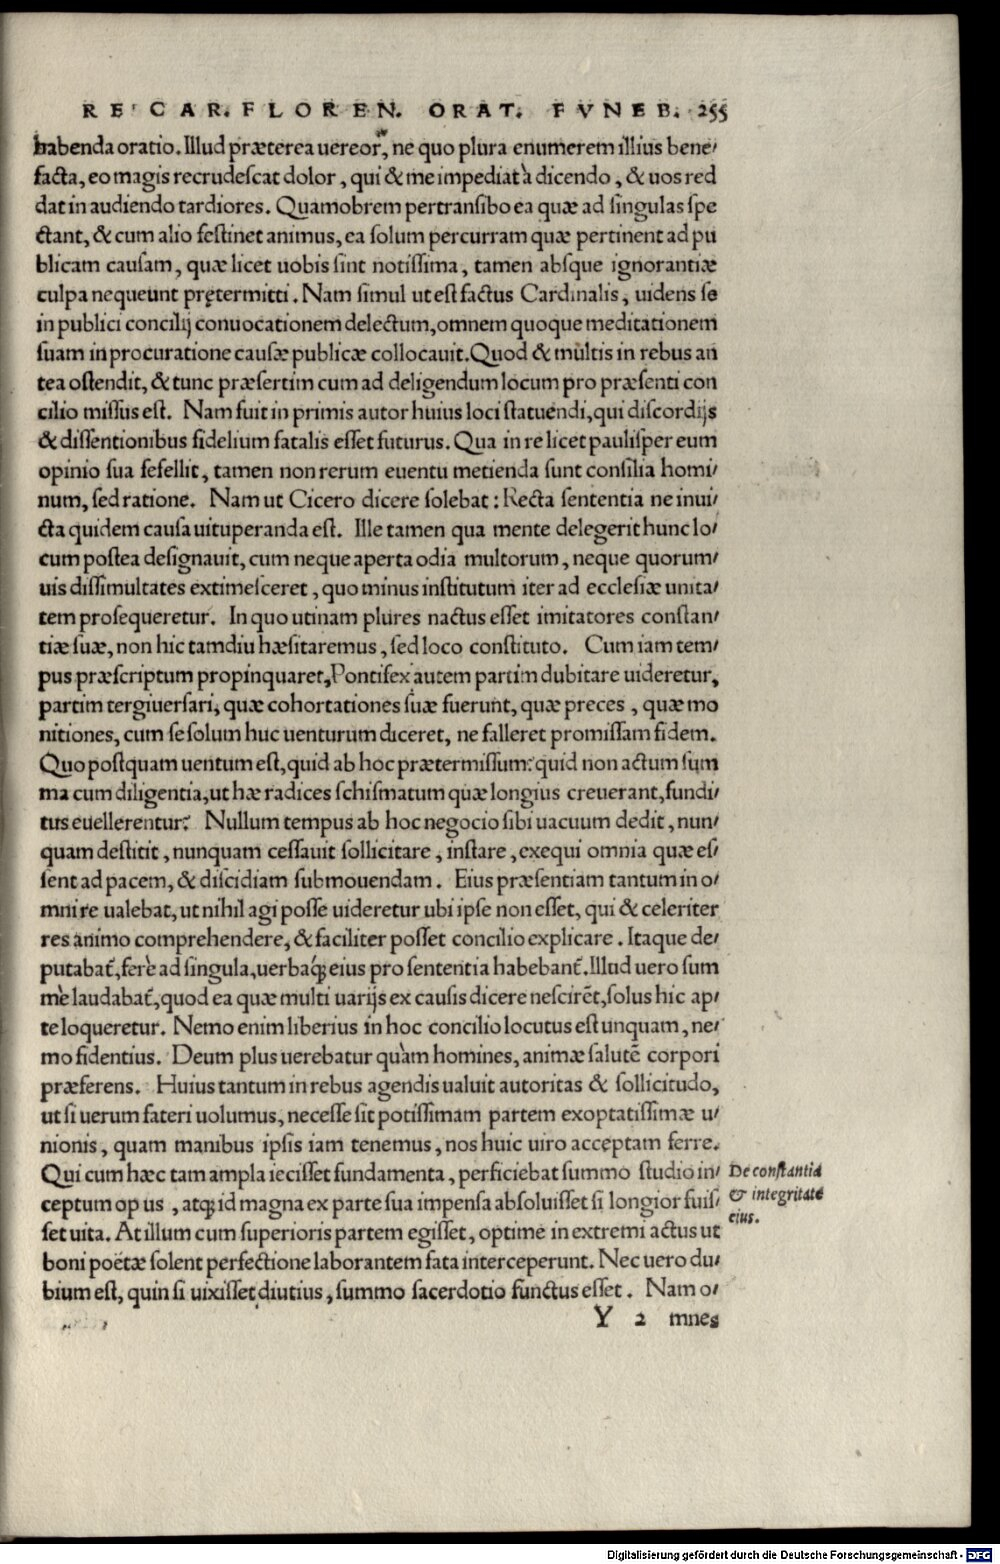 RE CAR. FLOREN. ORAT. FVNEB. 255
habenda oratio. Illud præterea uereor, ne quo plura enumerem illius bene/
facta, eo magis recrudeſcat dolor, qui & me impediat à dicendo, & uos red
dat in audiendo tardiores. Quamobrem pertranſibo ea quæ ad ſingulas ſpe
ctant, & cum alio feſtinet animus, ea ſolum percurram quæ pertinent ad pu
blicam cauſam, quæ licet uobis ſint notiſſima, tamen abſque ignorantiæ
culpa nequeunt prętermitti. Nam ſimul ut eſt factus Cardinalis, uidens ſe
in publici concilij conuocationem delectum, omnem quoque meditationem
ſuam in procuratione cauſæ publicæ collocauit. Quod & multis in rebus an
tea oſtendit, & tunc præſertim cum ad deligendum locum pro præſenti con
cilio miſſus eſt. Nam fuit in primis autor huius loci ſtatuendi, qui diſcordijs
& diſſentionibus fidelium fatalis eſſet futurus. Qua in re licet pauliſper eum
opinio ſua fefellit, tamen non rerum euentu metienda ſunt conſilia homi/
num, ſed ratione. Nam ut Cicero dicere ſolebat: Recta ſententia ne inui/
cta quidem cauſa uituperanda eſt. Ille tamen qua mente delegerit hunc lo/
cum poſtea deſignauit, cum neque aperta odia multorum, neque quorum/
uis diſſimultates extimeſceret, quo minus inſtitutum iter ad eccleſiæ unita/
tem proſequeretur. In quo utinam plures nactus eſſet imitatores conſtan/
tiæ ſuæ, non hic tamdiu hæſitaremus, ſed loco conſtituto. Cum iam tem/
pus præſcriptum propinquaret, Pontifex autem partim dubitare uideretur,
partim tergiuerſari, quæ cohortationes ſuæ fuerunt, quæ preces, quæ mo
nitiones, cum ſe ſolum huc uenturum diceret, ne falleret promiſſam fidem.
Quo poſtquam uentum eſt, quid ab hoc prætermiſſum? quid non actum ſum
ma cum diligentia, ut hæ radices ſchiſmatum quæ longius creuerant, fundi/
tus euellerentur? Nullum tempus ab hoc negocio ſibi uacuum dedit, nun/
quam deſtitit, nunquam ceſſauit ſollicitare, inſtare, exequi omnia quæ eſ/
ſent ad pacem, & diſcidiam ſubmouendam. Eius præſentiam tantum in o/
mni re ualebat, ut nihil agi poſſe uideretur ubi ipſe non eſſet, qui & celeriter
res animo comprehendere, & faciliter poſſet concilio explicare. Itaque de/
putabat̃, ferè ad ſingula, uerbaq́; eius pro ſententia habebant̃. Illud uero ſum
mè laudabat̃, quod ea quæ multi uarijs ex cauſis dicere neſcirẽt, ſolus hic ap/
te loqueretur. Nemo enim liberius in hoc concilio locutus eſt unquam, ne/
mo fidentius. Deum plus uerebatur quàm homines, animæ ſalutẽ corpori
præferens. Huius tantum in rebus agendis ualuit autoritas & ſollicitudo,
ut ſi uerum fateri uolumus, neceſſe ſit potiſſimam partem exoptatiſſimæ u/
nionis, quam manibus ipſis iam tenemus, nos huic uiro acceptam ferre.
Qui cum hæc tam ampla ieciſſet fundamenta, perficiebat ſummo ſtudio in/
ceptum opus, atq; id magna ex parte ſua impenſa abſoluiſſet ſi longior fuiſ/
ſet uita. At illum cum ſuperioris partem egiſſet, optime in extremi actus ut
boni poëtæ ſolent perfectione laborantem fata interceperunt. Nec uero du/
bium eſt, quin ſi uixiſſet diutius, ſummo ſacerdotio functus eſſet. Nam o/
Y 2 mnes
De conſtantia
& integritate
eius.
Digitalisierung gefördert durch die Deutsche Forschungsgemeinschaft - DFG